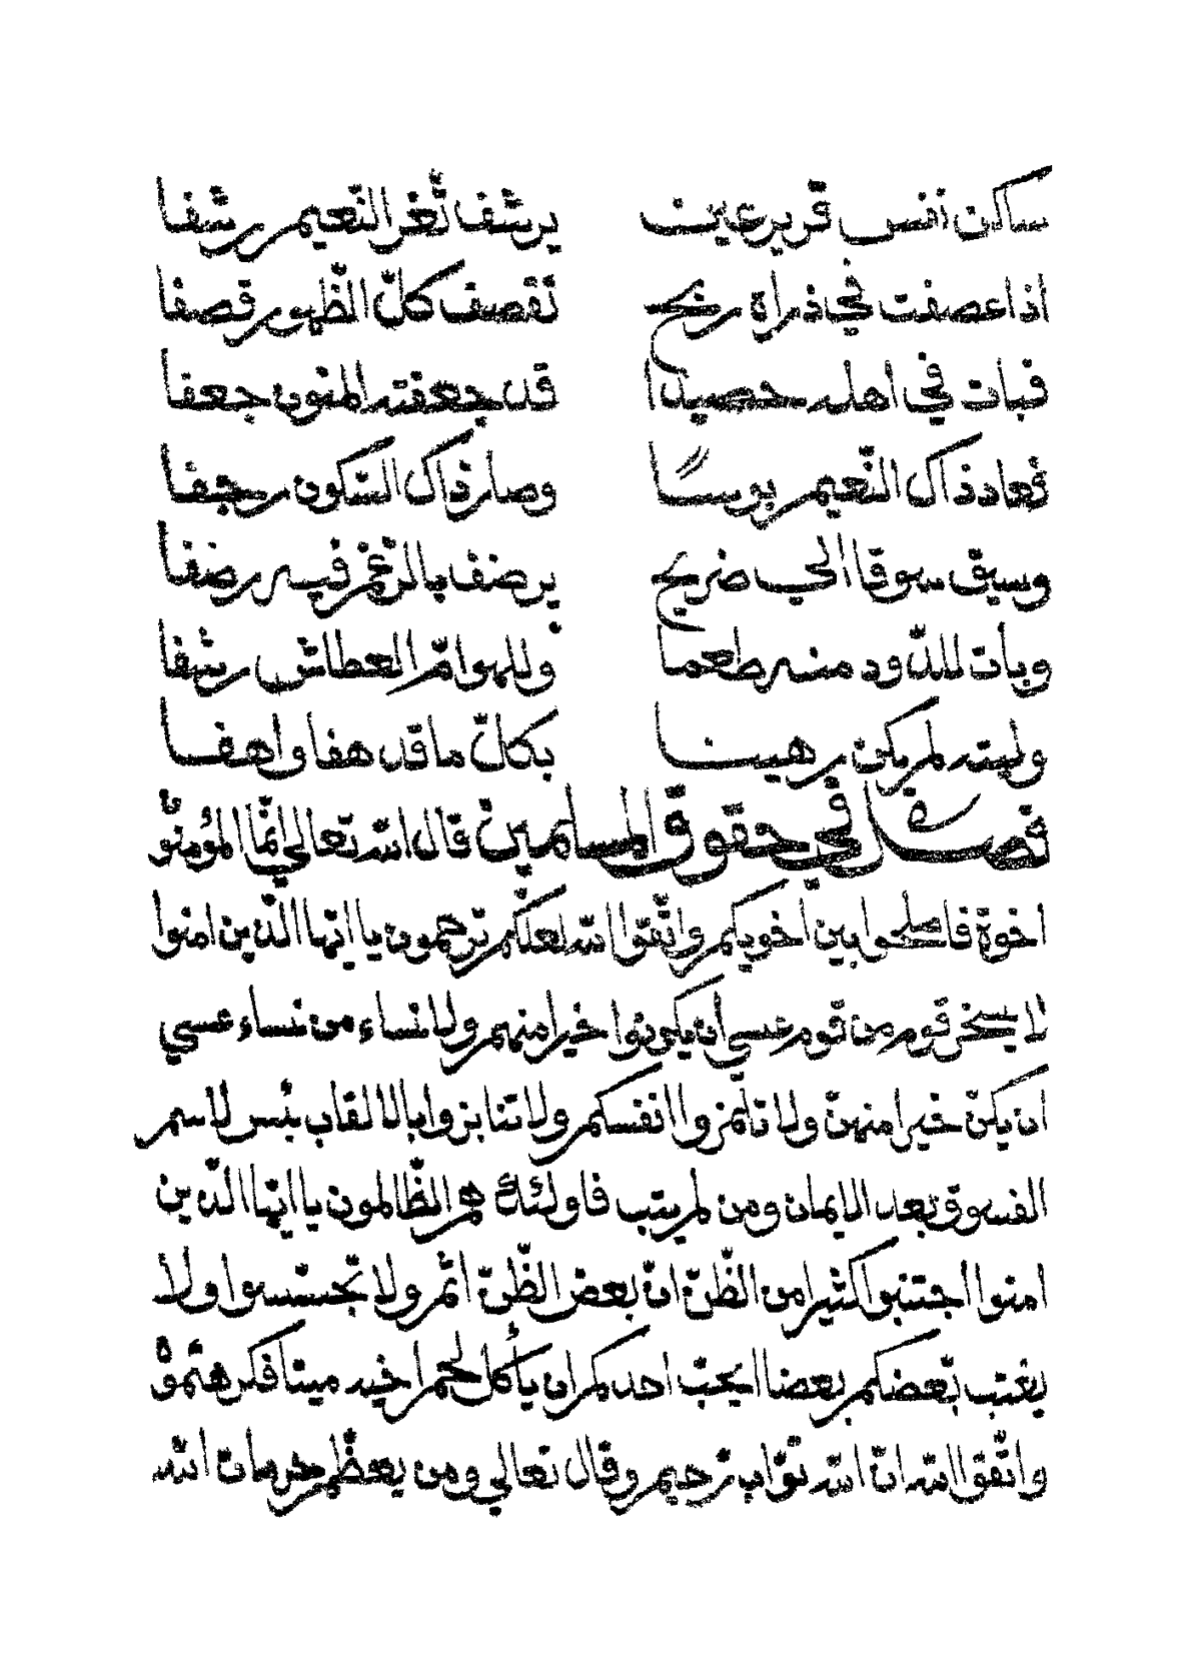 ساكن نفس قرير عين يرشف ثغر النّعيم رشفا
اذا عصفت في ذراة ريح تقصف كلّ الظّهور قصفا
فبات في اهله حصيدا قد جعفته المنون جعفا
فعاد ذاك النّعيم بوسًا وصار ذاك السّكون رجفا
وسيق سوقا الي ضريح يرضف بالرّغم فيه رضفا
وبات للدّود منه طعما وللهوامّ العطاش رشفا
وليته لم يكن رهينا بكلّ ما قد هفا واهفا
فصل في حقوق المسلمين قال الله تعالي انّما المؤمنون
اخوة فاصلحوا بين اخويكم واتّقوا الله لعلّكم ترحمون يا ايّها الّذين امنوا
لا يسخر قوم من قوم عسي ان يكونوا خيرا منهم ولا نساء من نساء عسي
ان يكنّ خيرا منهنّ ولا تلمزوا انفسكم ولا تنابزوا بالالقاب بئس لاسم
الفسوق بعد الايمان ومن لم يتب فاولئك هم الظّالمون يا ايّها الّذين
امنوا اجتنبوا كثيرا من الظّنّ انّ بعض الظّنّ اثم ولا تجسّسوا ولا
يغتب بّعضكم بعضا ايحبّ احدكم ان يأكل لحم اخيه ميتا فكرهتموه
واتّقوا الله انّ الله توّاب رّحيم وقال تعالي ومن يعظّم حرمات الله